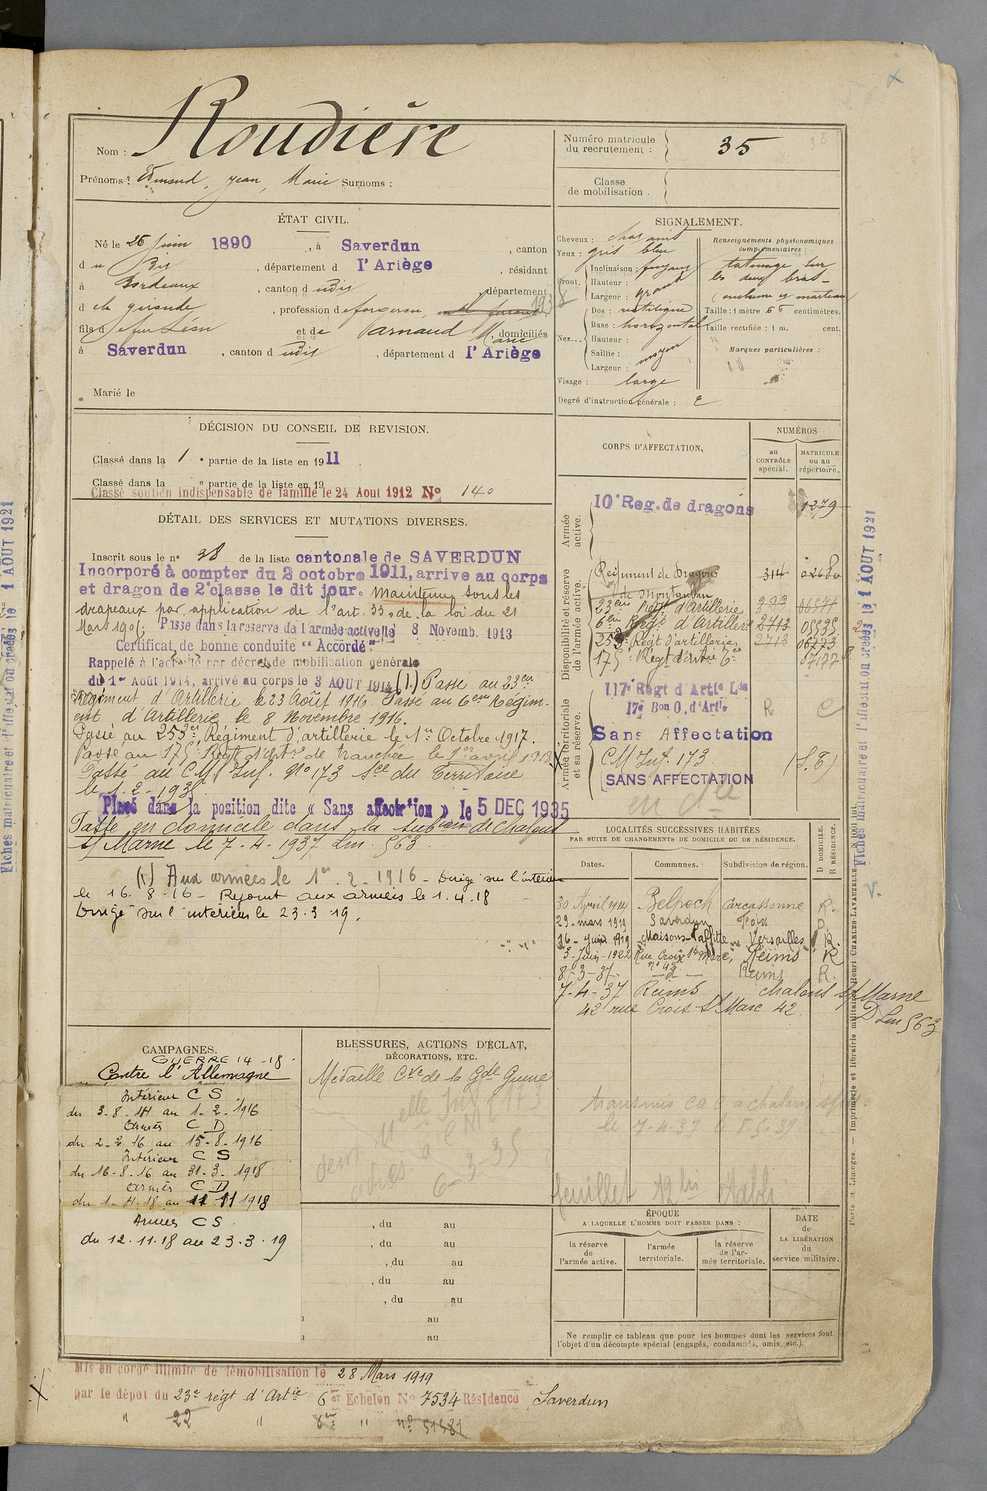 Roudière
Nom :
Prénoms : Edmond, Jean, Marie Surnoms :
Numéro matricule du recrutement : 35
Classe de mobilisation :
ÉTAT CIVIL.
Né le 26 Juin 1890, à Saverdun, canton
du dit, département d l'Ariège, résidant
à Bordeaux, canton d udit, département
d e la gironde, profession de forgeron,
fils d e feu Léon et de Parnaud Marie, domiciliés
à Saverdun, canton d udit, département d l'Ariège
Marié le
SIGNALEMENT.
Cheveux : chatains
Yeux : gris bleu
Front. Inclinaison : fuyant
Hauteur :
Largeur : grand
Nez... Dos : rectiligne
Base : horizontal
Hauteur :
Saillie :
Largeur : moyen
Visage : large
Degré d'instruction générale : 2
Renseignements physionomiques complémentaires :
tatouage sur
les deux bras -
(enclume et marteau
Taille : 1 mètre 66 centimètres.
Taille rectifiée : 1 m. cent.
Marques particulières :
DÉCISION DU CONSEIL DE REVISION.
Classé dans la 1e partie de la liste en 1911
Classé dans la e partie de la liste en 19
Classé soutien indispensable de famille le 24 Aout 1912 No 140
DÉTAIL DES SERVICES ET MUTATIONS DIVERSES.
Inscrit sous le no 38 de la liste cantonale de SAVERDUN
Incorporé à compter du 2 octobre 1911, arrivé au corps
et dragon de 2e classe le dit jour. Maintenu sous les
drapeaux par application de l'art. 33 de la loi du 21
Mars 1905. Passé dans la reserve de l'armée active le 8 Novemb. 1913
Certificat de bonne conduite "Accordé"
Rappelé à l'activité par décret de mobilisation générale
du 1er Août 1914, arrivé au corps le 3 AOUT 1914 (1.) Passé au 23eme
Régiment d'Artillerie le 23 Août 1916. Passé au 6eme Régim-
ent d'Artillerie le 8 Novembre 1916.
Passé au 253e Régiment d'artillerie le 1er Octobre 1917.
Passé au 175e Régt d'Artie de tranchée le 1er avril 1918
Passé au CM Inf. No 173 Sce du Territoire
le 1-2-1935
Placé dans la position dite « Sans affectation » le 5 DEC 1935
Passé en domicile dans la subion de Chalons
s/ Marne le 7.4.1937 Lm 563
(1) Aux armées le 1er - 2 - 1916 - Dirigé sur l'intérieur
le 16.8.16 - Rejoint aux armées le 1.4.18
Dirigé sur l'intérieur le 23.3.19.
CORPS D'AFFECTATION,
NUMÉROS
au CONTRÔLE spécial.
MATRICULE ou au répertoire.
Armée active.
10e Reg. de dragons 1279
Disponibilité et réserve de l'armée active.
Régiment de Dragons 314
de Montauban
23eme Régt d'Artillerie
6eme Régt d'Artillerie 2713 05535
253e Régt d'artillerie 2713
175e Régt d'artie
Armée territoriale et sa réserve.
117e Régt d'Artie Lde
17e Bon O. d'Artie R C
Sans Affectation
CM Inf. 173
SANS AFFECTATION
LOCALITÉS SUCCESSIVES HABITÉES
PAR SUITE DE CHANGEMENTS DE DOMICILE OU DE RÉSIDENCE.
Dates. Communes. Subdivision de région. D DOMICILE. R RÉSIDENCE.
30 Avril 1914 Belpech Carcassonne R.
29 mars 1919 Saverdun Foix D.
26 - Juin 1919 Maisons-Laffitte Versailles R.
3 - Juin - 1922 Rue Croix St Marc, Reims R
no 42
8-3-37 - d - Reims R.
7-4-37 Reims chalons s/ Marne
42 rue Croix St Marc 42 D Lm 563
CAMPAGNES.
GUERRE 14-18.
Contre l'Allemagne
Intérieur C S
du 3-8-14 au 1-2-1916
Armées C D
du 2-2-16 au 15-8-1916
Intérieur C S
du 16-8-16 au 31-3-1918
Armées C D
du 1-4-18 au 11 11 1918
Armées C S
du 12.11.18 au 23.3.19
BLESSURES, ACTIONS D'ÉCLAT,
DÉCORATIONS, ETC.
Médaille Cve de la Gde Guerre
6-3-35
, du au
, du au
, du au
, du au
, du au
au
au
ÉPOQUE
A LAQUELLE L'HOMME DOIT PASSER DANS :
la réserve de l'armée active.
l'armée territoriale.
la réserve de l'armée territoriale.
DATE de LA LIBÉRATION du service militaire.
Ne remplir ce tableau que pour les hommes dont les services font
l'objet d'un décompte spécial (engagés, condamnés, omis, etc.).
Mis en congé illimité de démobilisation le 28 Mars 1919
par le dépôt du 23e régt d'Artie 6e Echelon No 7534 Résidence Saverdun
" 22 " 6e " no
Paris et Limoges. — Imprimerie et librairie militaire Henri CHARLES-LAVAUZELLE
Fiches matriculaire et d'affectation créées le 1 AOUT 1921
Fiches matriculaire et d'affectation créées le 1 AOUT 1921